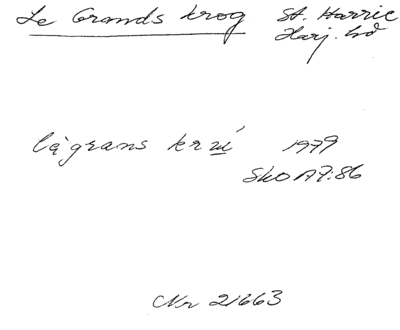 Le Grands krog St. Harrie
Harj. hd
lạgrans kru̲í 1979
Sko A7:86
Nr 21663